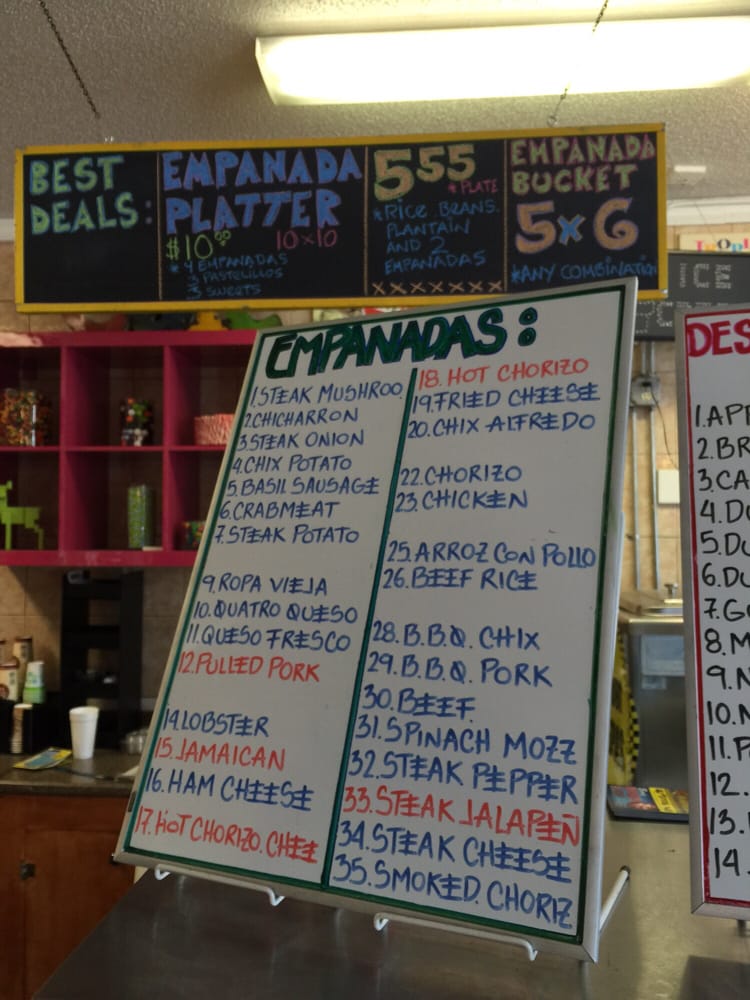 BEST
DEALS:
EMPANADA
PLATTER
$10.00 10x10
* 4 EMPANADAS
3 PASTELILLOS
3 SWEETS
555
* PLATE
* RICE BEANS.
PLANTAIN
AND 2
EMPANADAS
XXXXXXX
EMPANADA
BUCKET
5x6
*ANY COMBINATION
EMPANADAS:
1.STEAK MUSHROO
2.CHICHARRON
3.STEAK ONION
4.CHIX POTATO
5.BASIL SAUSAGE
6.CRABMEAT
7.STEAK POTATO
9.ROPA VIEJA
10.QUATRO QUESO
11.QUESO FRESCO
12.PULLED PORK
14.LOBSTER
15.JAMAICAN
16.HAM CHEESE
17.HOT CHORIZO.CHEE
18.HOT CHORIZO
19.FRIED CHEESE
20.CHIX ALFREDO
22.CHORIZO
23.CHICKEN
25.ARROZ CON POLLO
26.BEEF RICE
28.B.B.Q. CHIX
29.B.B.Q. PORK
30.BEEF.
31.SPINACH MOZZ
32.STEAK PEPPER
33.STEAK JALAPEÑ
34.STEAK CHEESE
35.SMOKED.CHORIZ
DES
1.APP
2.BR
3.CA
4.DU
5.DU
6.DU
7.G
8.M
9.N
10.N
11.P
12.
13.
14.